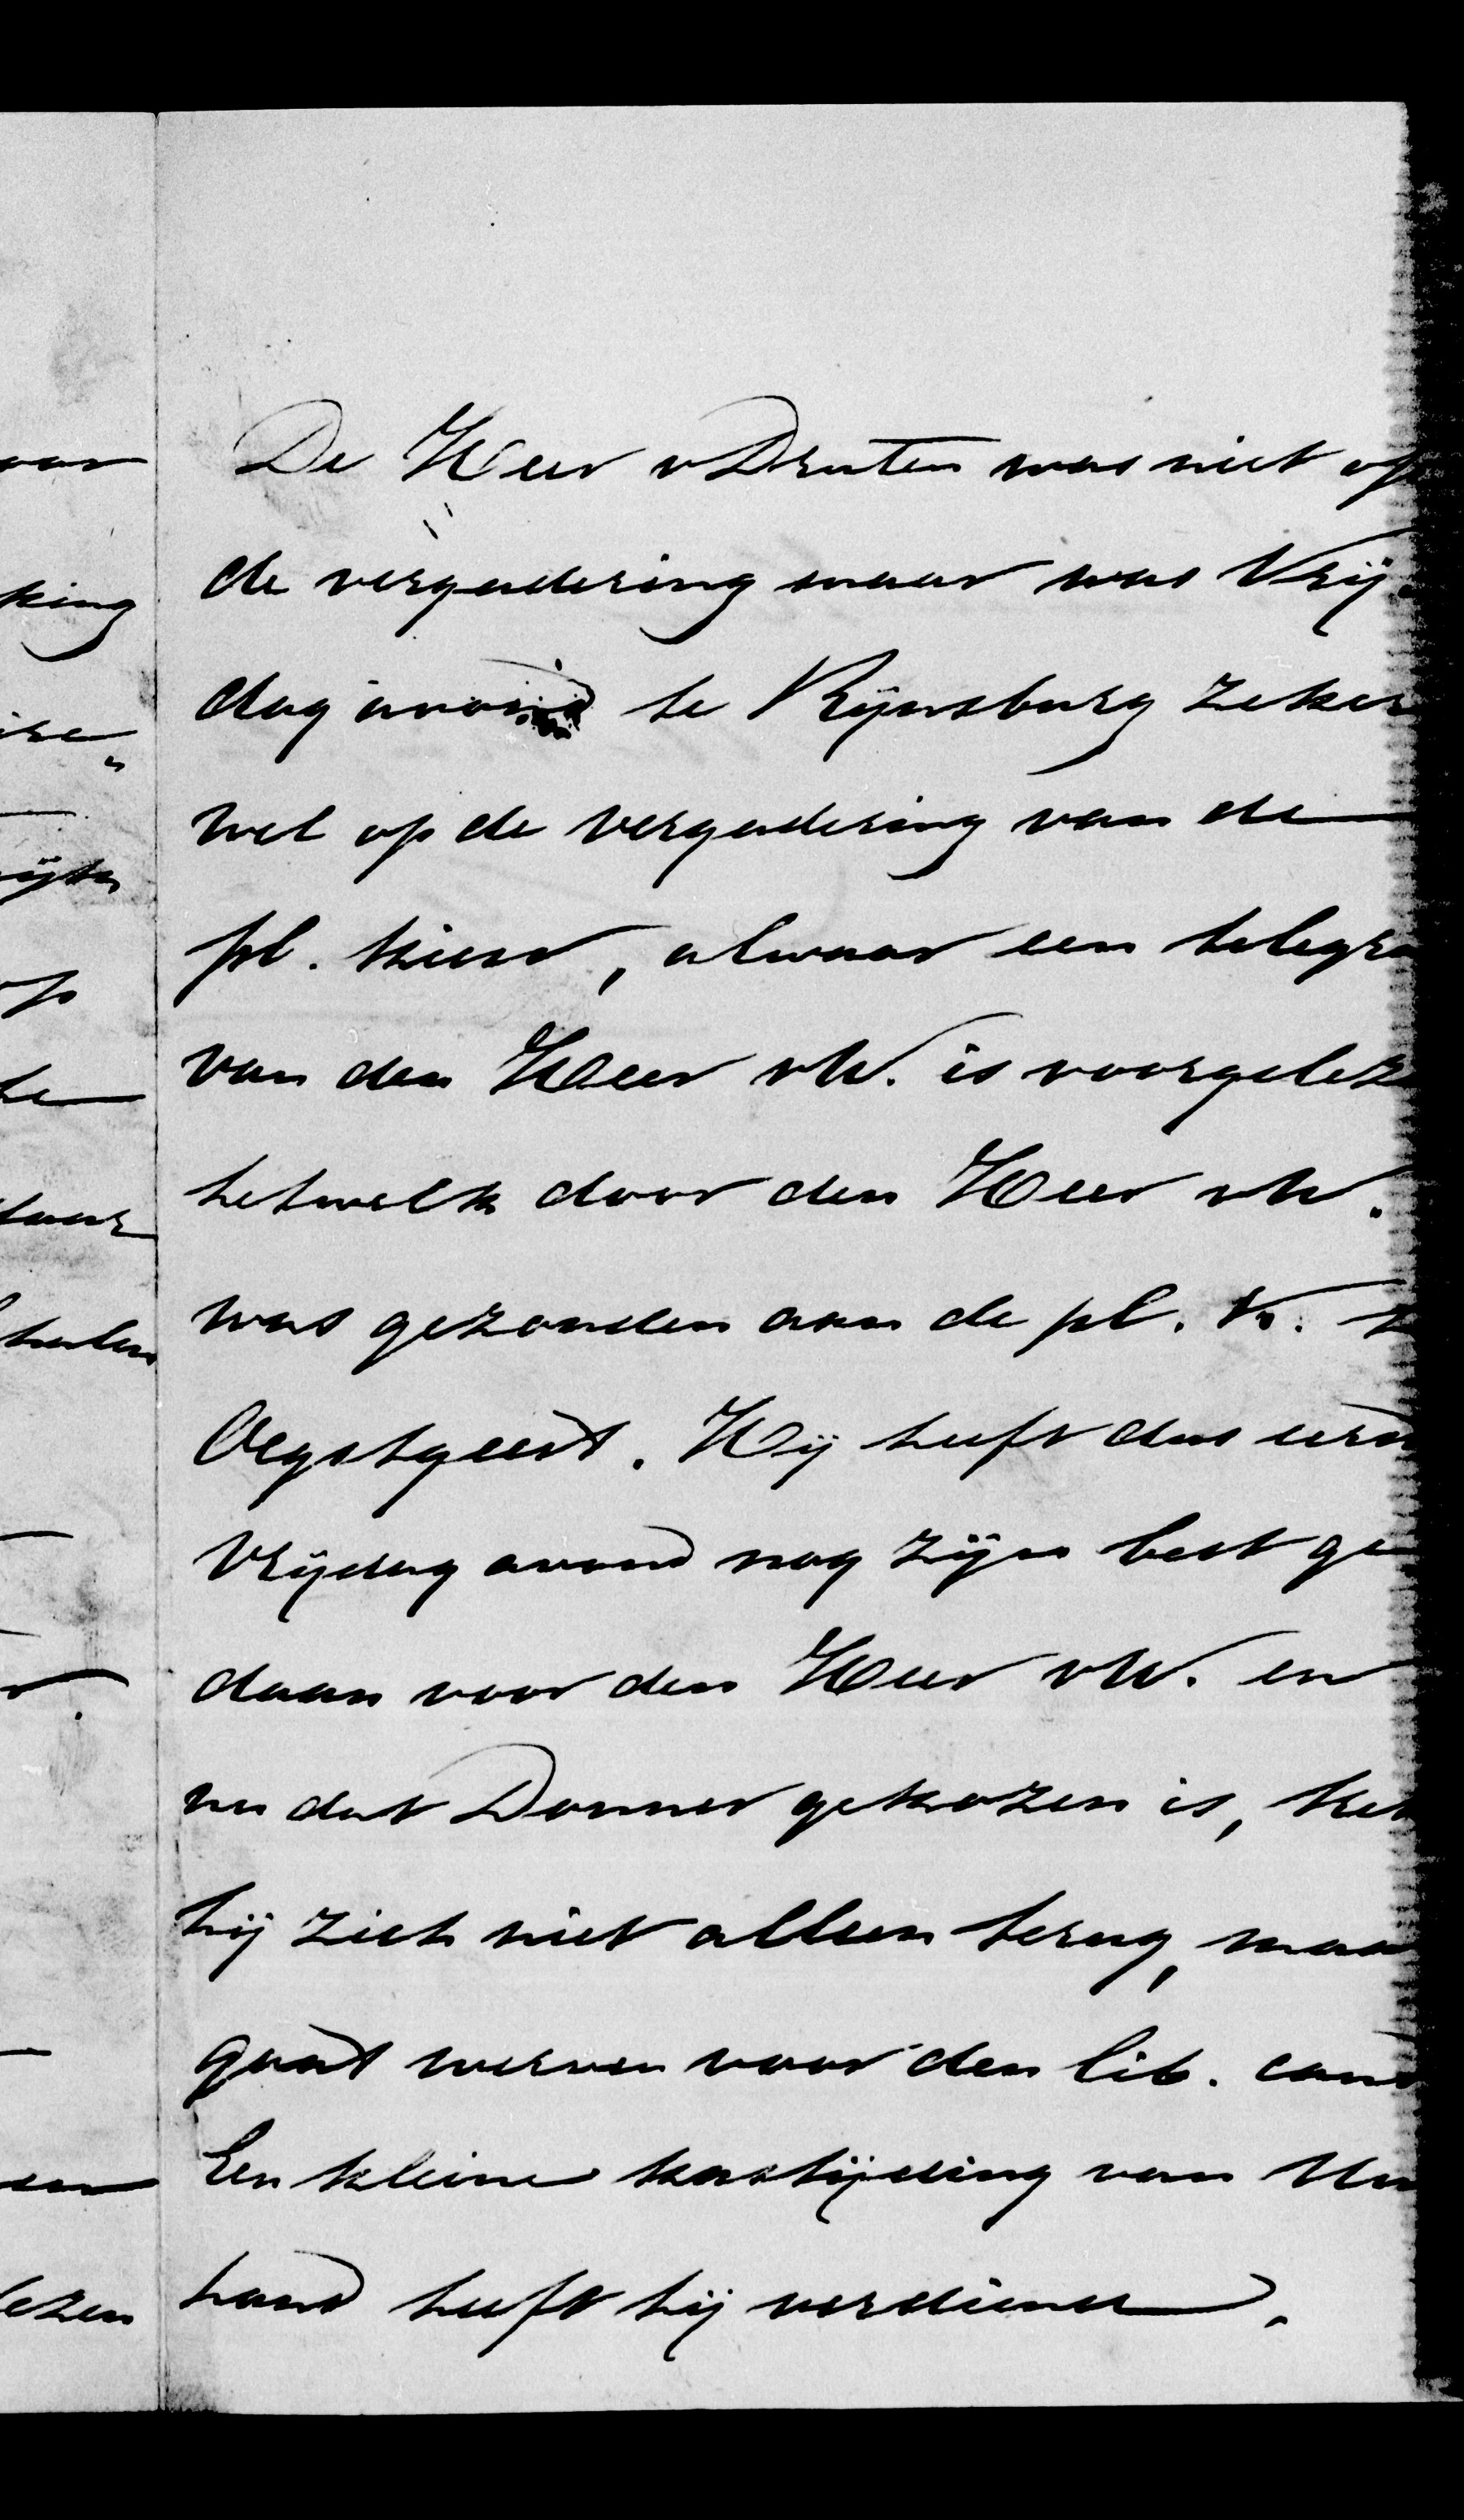 De Heer v Druten was niet op
de vergadering maar was Vrij-
dag avond te Rijnsburg zeker
wel op de vergadering van de
pl. kiesv, alwaar een telegra
van den Heer vW. is voorgelez
hetwelk door den Heer vW.
was gezonden aan de pl. K. t
Oegstgeest. Hij heeft dus eerst
Vrijdag avond nog zijn best ge
daan voor den Heer vW. en
nu dat Donner gekozen is, trek
hij zich niet alleen terug, maa
gaat werven voor den lib. cand
Een kleine kastijding van Uw
hand heeft hij verdiend.